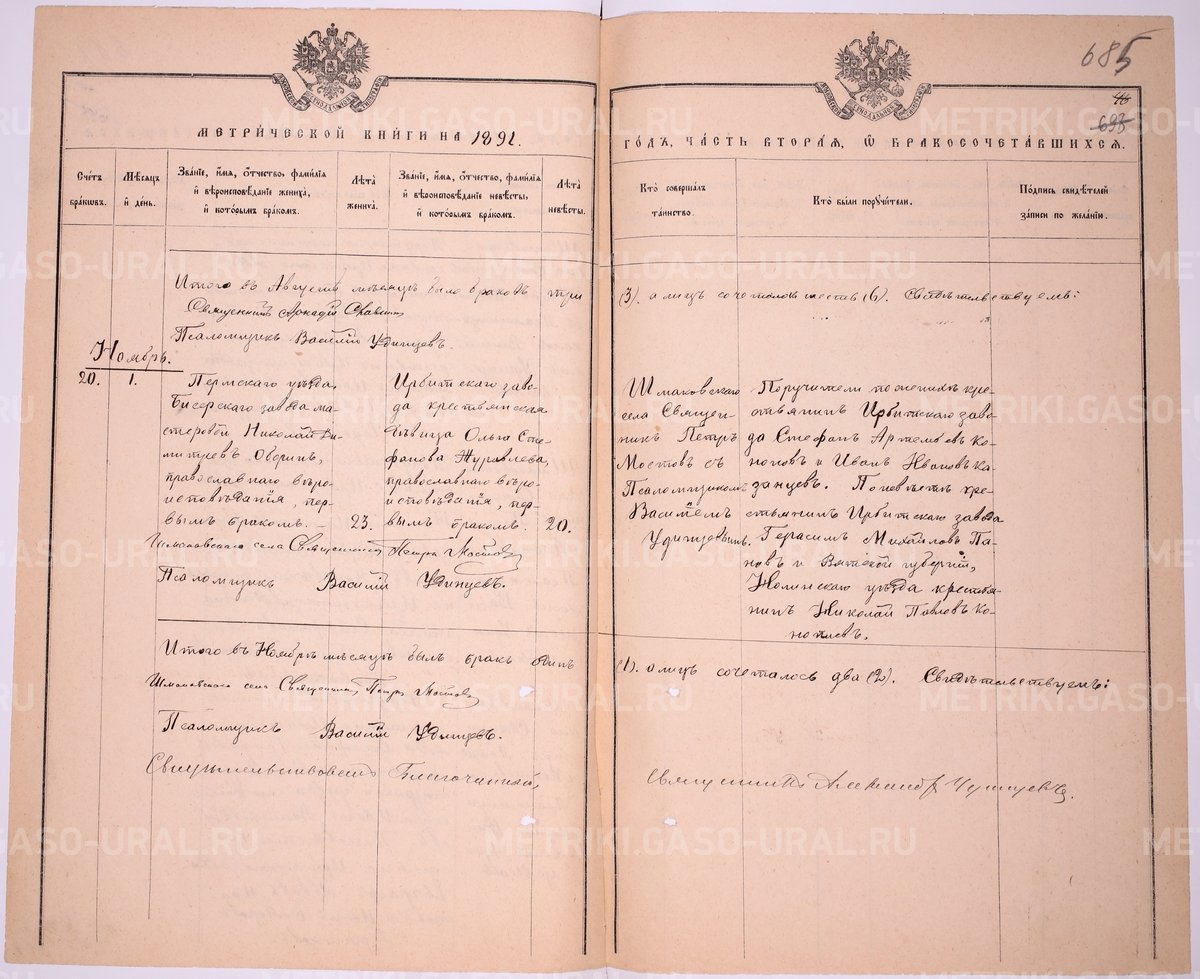 685
46
693
МЕТРИ́ЧЕСКОЙ КНИ́ГИ НА 1891.
ГО́ДЪ, ЧА́СТЬ ВТОРА́Ѧ, Ѽ БРАКОСОЧЕТА́ВШИХСѦ.
Сче́тъ бра́кѡвъ.
Мѣ́сѧцъ и҆ де́нь.
Зва́нїе, и҆́мѧ, ѻ҆́тчество, фами́лїѧ
и҆ вѣроисповѣ́данїе жениха̀,
и҆ кото́рымъ бра́комъ.
Лѣ́та
жениха̀.
Зва́нїе, и҆́мѧ, ѻ҆́тчество, фами́лїѧ
и҆ вѣроисповѣ́данїе невѣ́сты,
и҆ кото́рымъ бра́комъ.
Лѣ́та
невѣ́сты.
Кто̀ соверша́лъ
та́инство.
Кто̀ бы́ли порꙋчи́тели.
По́дпись свидѣ́телей
за́писи по жела́нїю.
Итого въ Августѣ мѣсяцѣ было браковъ три
(3). а лицъ сочеталось шесть (6). Свидѣтельствуемъ:
Священникъ Аркадій
Псаломщикъ Василій Удинцевъ.
Ноябрь.
20.
1.
Пермскаго уѣзда,
Бисерскаго завода ма-
стеровой Николай Ди-
митріевъ Оборинъ,
православнаго вѣро-
исповѣданія, пер-
вымъ бракомъ. –
23.
Ирбитскаго заво-
да крестьянская
дѣвица Ольга Сте-
фанова Журавлева,
православнаго вѣро-
исповѣданія, пер-
вымъ бракомъ.
20.
Шмаковскаго
села Священ-
никъ Петръ
Мостовъ съ
Псаломщикомъ
Василіемъ
Удинцевымъ.
Поручители по женихѣ кре-
стьянинъ Ирбитскаго заво-
да Стефанъ Артемьевъ Ко-
ноновъ и Иванъ Ивановъ Ка-
занцевъ. По невѣстѣ кре-
стьянинъ Ирбитскаго завода
Герасимъ Михайловъ Па-
новъ и Вятской губерніи,
Нолинскаго уѣзда крестья-
нинъ Николай Павловъ Ко-
Шмаковскаго села Священникъ Петръ Мостовъ
Псаломщикъ Василій Удинцевъ.
Итого въ Ноябрѣ мѣсяцѣ былъ бракъ одинъ
(1). а лицъ сочеталось два (2). Свидѣтельствуемъ:
Шмаковскаго села Священникъ Петръ Мостовъ
Псаломщикъ Василій Удинцевъ.
Свидѣтельствовалъ Благочинный,
Священникъ Александръ
METRIKI.GASO-URAL.RU